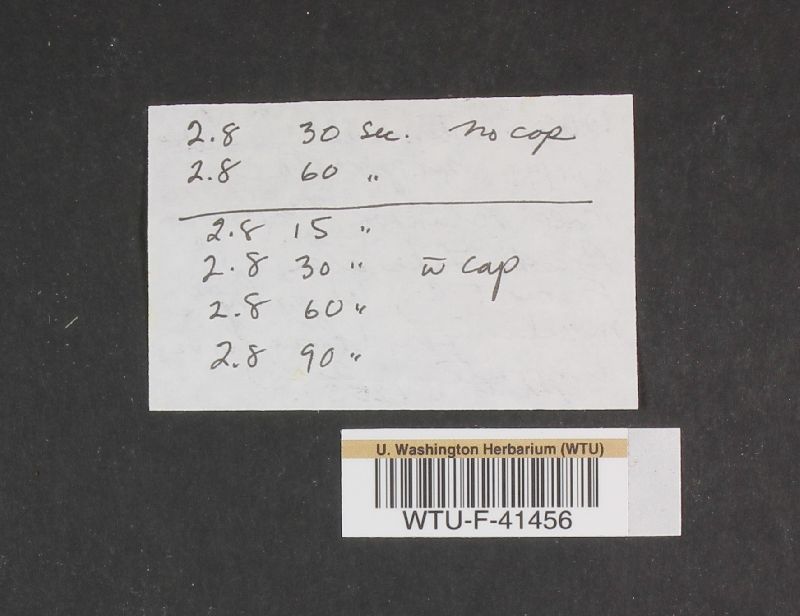 2.8 30 Sec. no cap
2.8 60 "
2.8 15 "
2.8 30 " w̅ cap
2.8 60 "
2.8 90 "
U. Washington Herbarium (WTU)
WTU-F-41456